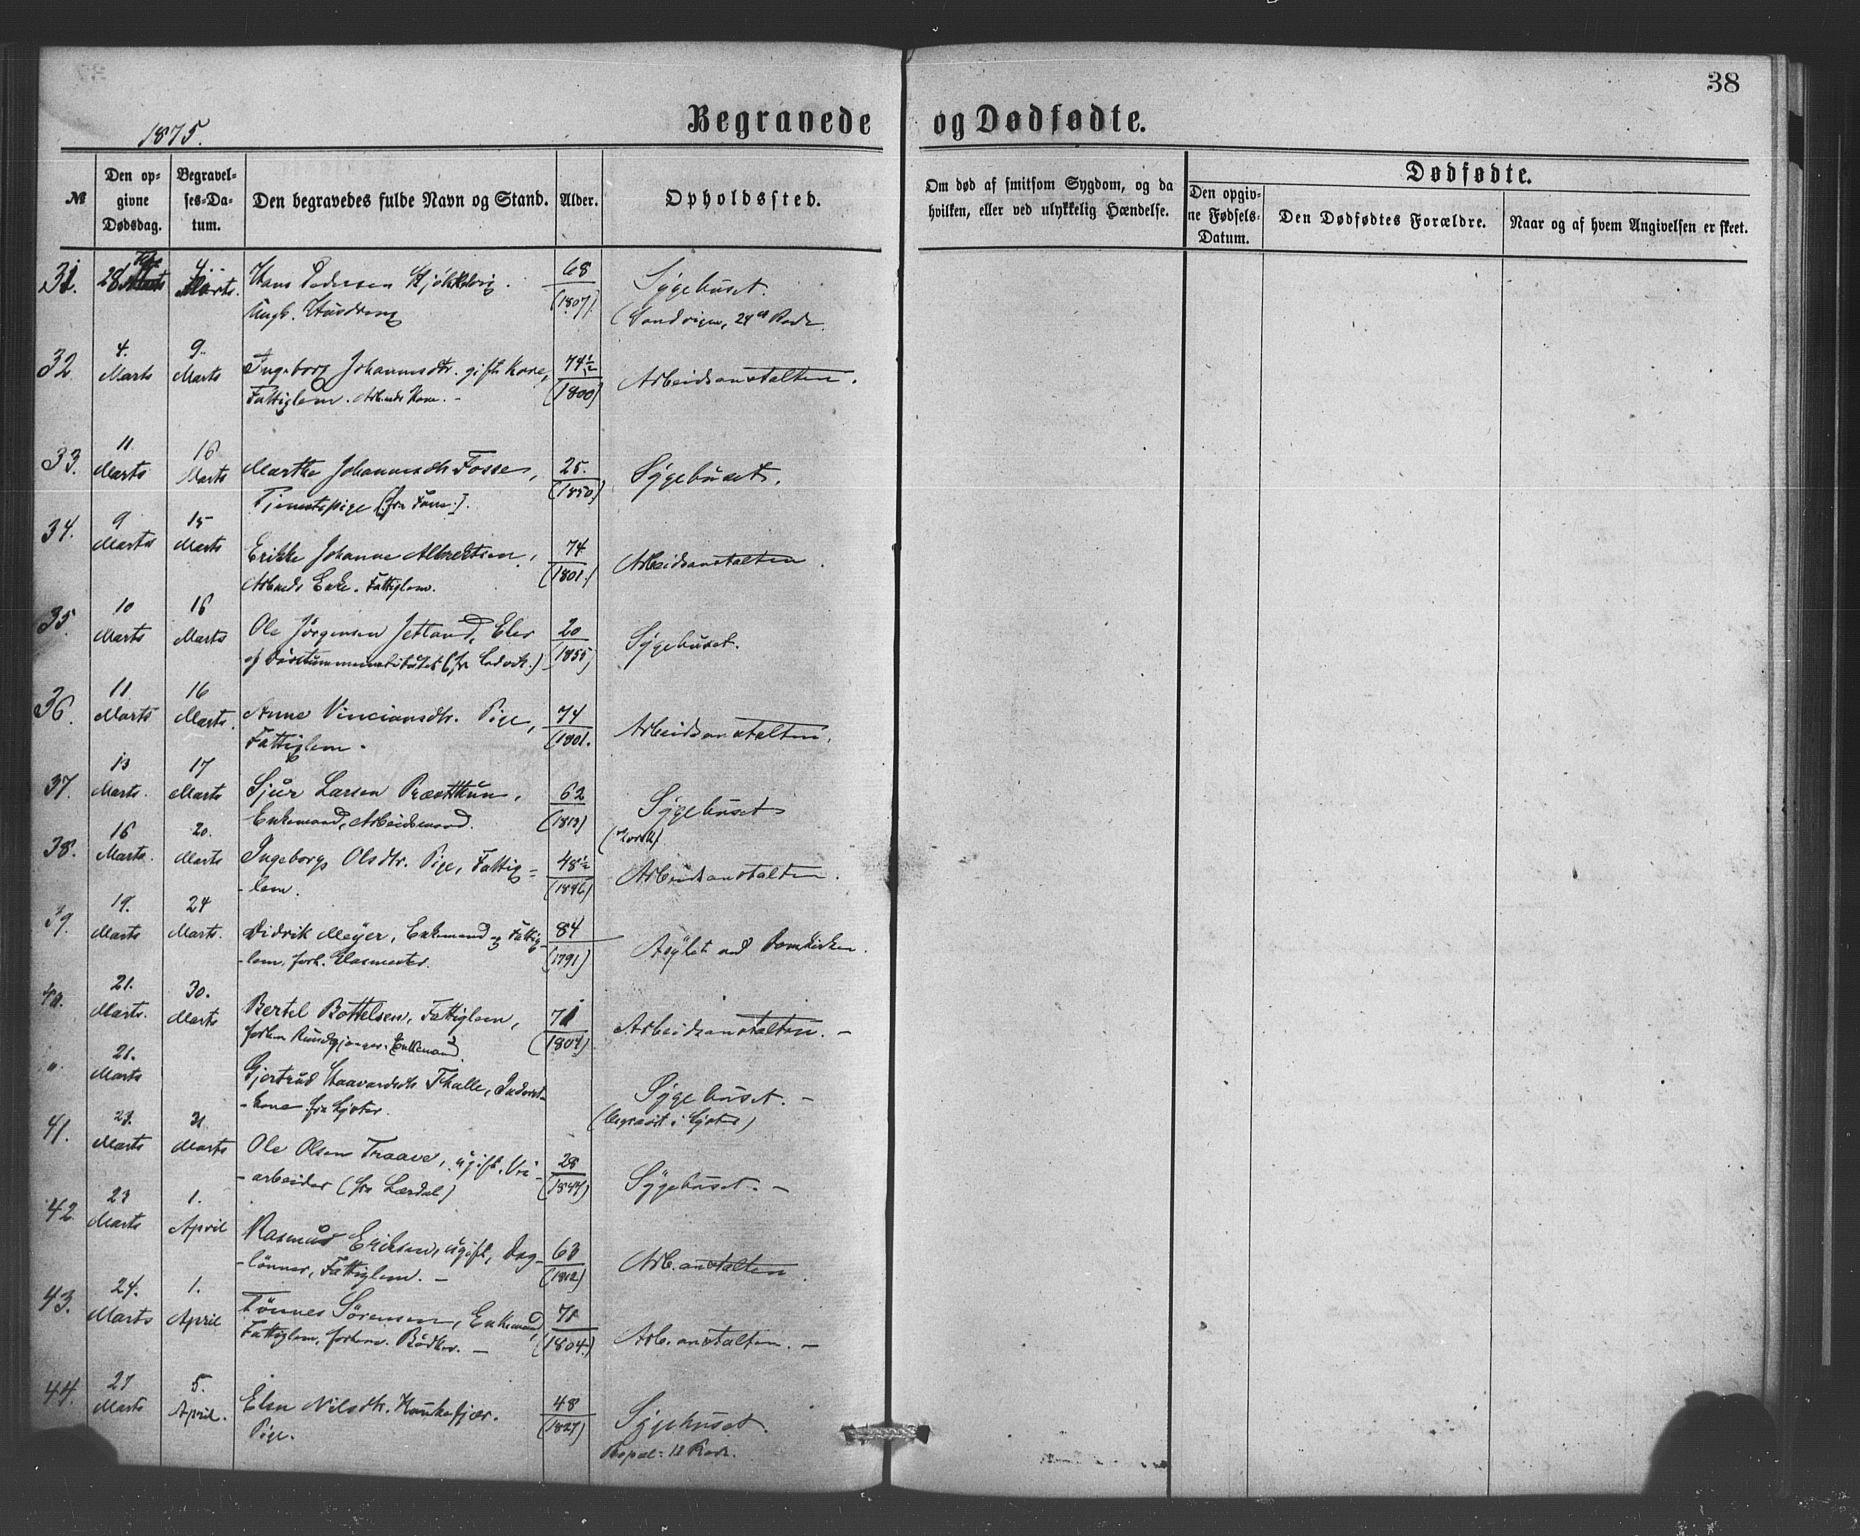 38
Begravede og Dødfødte.
1875.
№
Den opgivne Dødsdag.
Begravelses-Datum.
Den begravedes fulde Navn og Stand.
Alder.
Opholdssted.
Om død af smitsom Sygdom, og da hvilken, eller ved ulykkelig Hændelse.
Dødfødte.
Den opgivne Fødsels-Datum.
Den Dødfødtes Forældre.
Naar og af hvem Angivelsen er skeet.
31. 28 4. Marts. Hans Pedersen 68 Sygehuset.
Ungk. (1807) (Sandvigen, 24de Rode.
32 4. Marts 9. Marts Ingeborg Johannesdtr. gift Kone, 74½ Arbeidsanstalten.
Fattiglem. Arbeids Kone. - (1800)
33. 11 Marts 16 Marts Marthe Johannesdtr Fosse, 25. Sygehuset.
Tjenestepige (fra Fane.) (1850)
34. 9 Marts 15 Marts Erikke Johanne Albrektsen, 74 Arbeidsanstalten.
Arbeids Enke. Fattiglem. (1801.)
35. 10 Marts 16 Marts Ole Jørgensen Jetland, Elev 20 Sygehuset.
af Døvstummeinstitutet (1855)
36. 11 Marts 16 Marts. Anne Vinciansdtr. Pige, 74 Arbeidsanstalten.
Fattiglem. (1801.
37. 13 Marts. 17 Marts Sjur Larsen Præsthun, 62 Sygehuset
Enkemand, Arbeidsmand. (1813)
38. 16 Marts. 20. Marts Ingeborg Olsdtr. Pige, Fattig= 48½ Arbeidsanstalten.
-lem. (1826)
39. 19. Marts 24 Marts. Didrik Meÿer, Enkemand og Fattig- 84 Asylet ved Domkirken.
-lem, forh. Glasmester. (1791)
40. 21. Marts. 30. Marts Bertel Bottelsen, Fattiglem, 71 Arbeidsanstalten. -
forhen Rundgjænger. Enkemand. (1804)
" 21. Marts Gjertrud Haavardsdtr Thalle, Inderst- Sygehuset. -
-kone fra (begravet i
41. 23. Marts 31 Marts Ole Olsen Traave, ugift, Vei- 28 Sygehuset. -
-arbeider (fra Lærdal) (1847)
42. 23 Marts 1. April Rasmus Eriksen, ugift, Dag- 63 Arb.anstalten.
-lønner, Fattiglem. - (1812)
43. 24. Marts 1. April Tönnes Sörensen, Enkemand, 71 Arb.anstalten. -
Fattiglem, forhen. Bödker. - (1804.)
44. 27 Marts 5. April. Elen Nilsdtr. Haukefjær. 48 Sygehuset.
Pige. (1827) 12 Rode.